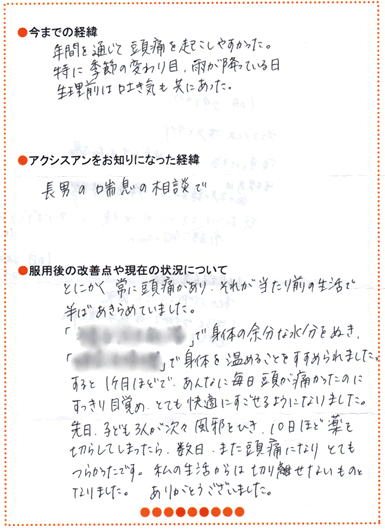 ●今までの経緯
年間を通じて頭痛を起こしやすかった。
特に季節の変わり目、雨が降っている日
生理前は吐き気も共にあった。
●アクシスアンをお知りになった経緯
長男の喘息の相談で
●服用後の改善点や現在の状況について
とにかく常に頭痛があり、それが当たり前の生活で
半ばあきらめていました。
「」で身体の余分な水分をぬき、
「」で身体を温めることをすすめられました。
すると1ヶ月ほどで、あんなに毎日頭が痛かったのに
すっきり目覚め、とても快適にすごせるようになりました。
先日、子ども3人が次々風邪をひき、10日ほど薬を
切らしてしまったら、数日、また頭痛になりとても
つらかったです。私の生活からは切り離せないものと
なりました。ありがとうございました。